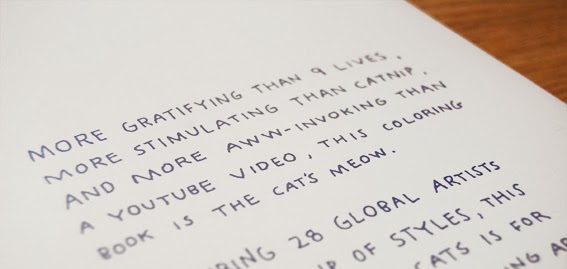 MORE GRATIFYING THAN 9 LIVES,
MORE STIMULATING THAN CATNIP,
AND MORE AWW-INVOKING THAN
A YOUTUBE VIDEO, THIS COLORING
BOOK IS THE CAT'S MEOW.
RING 28 GLOBAL ARTISTS
P OF STYLES, THIS
CATS IS FOR